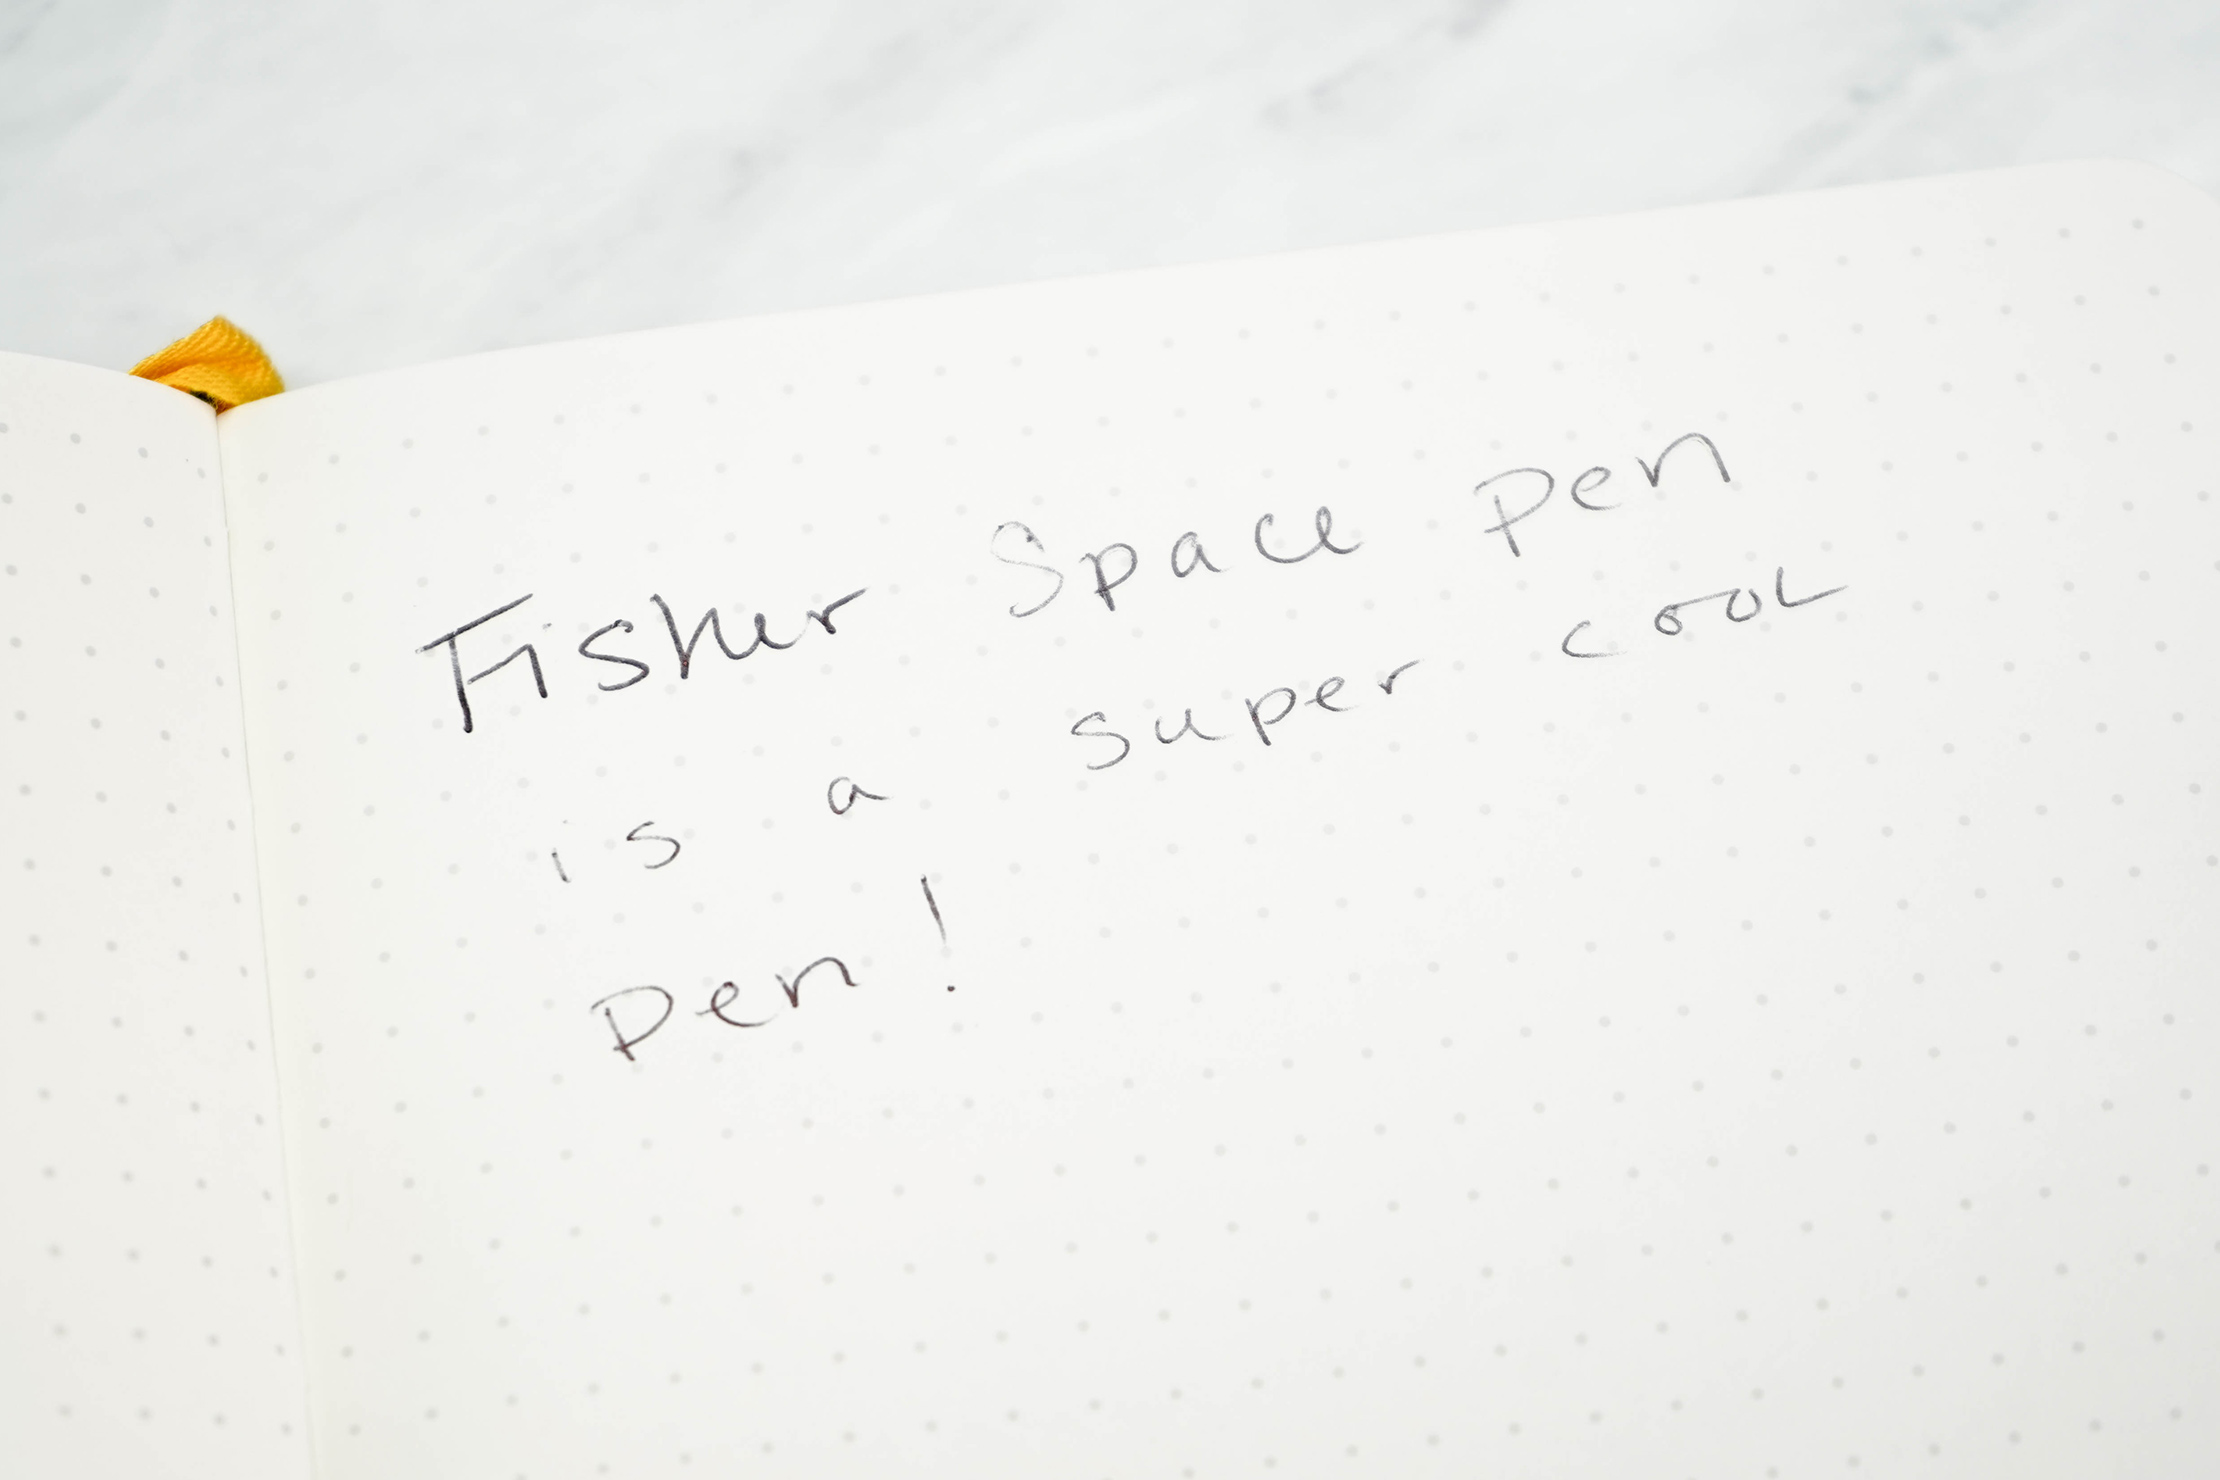 Fisher Space Pen
is a super cool
Pen!